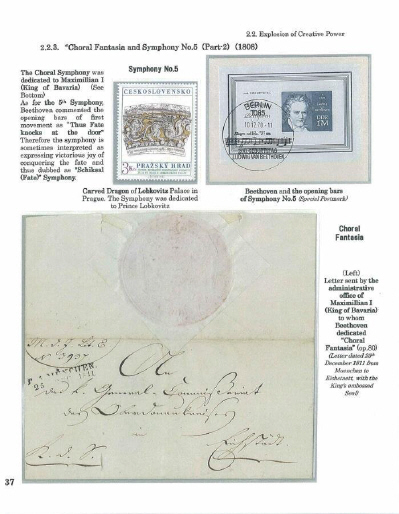 2.2. Explosion of Creative Power
2.2.3. "Choral Fantasia and Symphony No.5 (Part-2) (1808)
The Choral Symphony was
dedicated to Maximillian I
(King of Bavaria) (See
Bottom)
As for the 5th Symphony,
Beethoven commented the
opening bars of first
movement as "Thus Fate
knocks at the door"
Therefore the symphony is
sometimes interpreted as
expressing victorious joy of
conquering the fate and
thus dubbed as "Schiksal
(Fate)" Symphony.
Symphony No.5
ČESKOSLOVENSKO
PRAŽSKÝ HRAD
Carved Dragon of Lobkovitz Palace in
Prague. The Symphony was dedicated
to Prince Lobkovitz
BERLIN
1085
DDR 1M
LUDWIG VAN BEETHOVEN
Beethoven and the opening bars
of Symphony No.5 (Special Postmark)
Choral
Fantasia
(Left)
Letter sent by the
administrative
office of
Maximillian I
(King of Bavaria)
to whom
Beethoven
dedicated
"Choral
Fantasia" (op.80)
(Letter dated 28th
December 1811 from
Muenchen to
Eichstaett, with the
King's embossed
Seal)
An
General-Commissariat
Eichstädt.
37